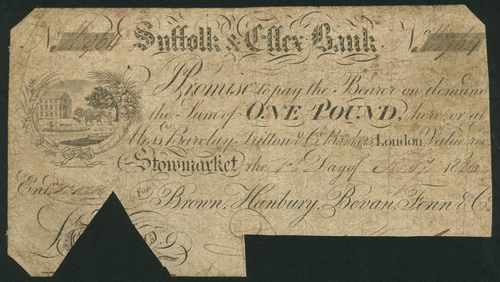 Suffolk & Essex Bank.
I Promise to pay the Bearer on demand
the Sum of ONE POUND, here, or at
Mess.rs Barclay, Tritton & C.o Bankers London Value rec
Stowmarket the 1 Day of 18
Ent.d
For Brown, Hanbury, Bevan, Fenn & C